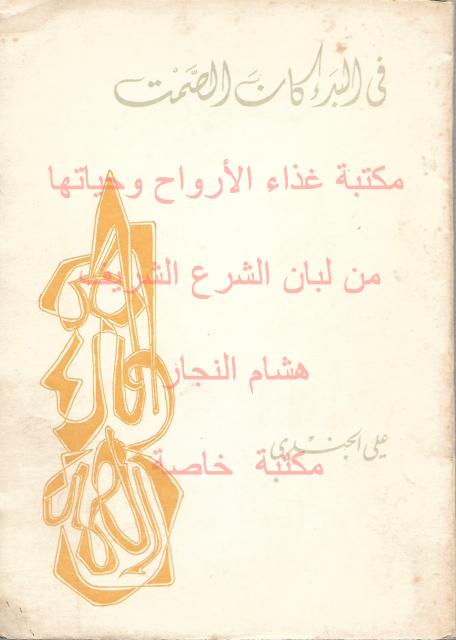 في البدء كان الصمت
مكتبة غذاء الأرواح وحياتها
من لبان الشرع الشريف
هشام النجار
علي الجندي
مكتبة خاصة